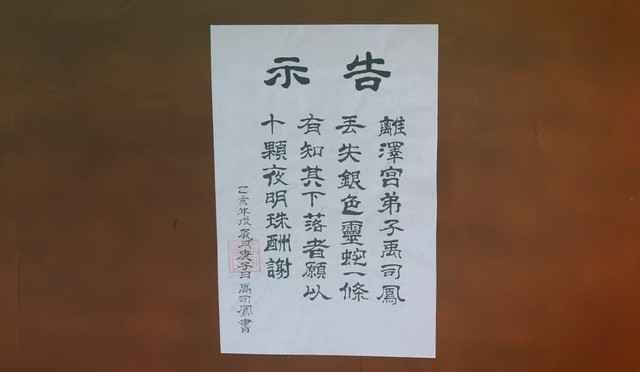 告示
離澤宫弟子禹司鳳
丟失銀色靈蛇一條
有知其下落者願以
十顆夜明珠酬謝
乙亥年戊辰月庚子日禹司鳳書